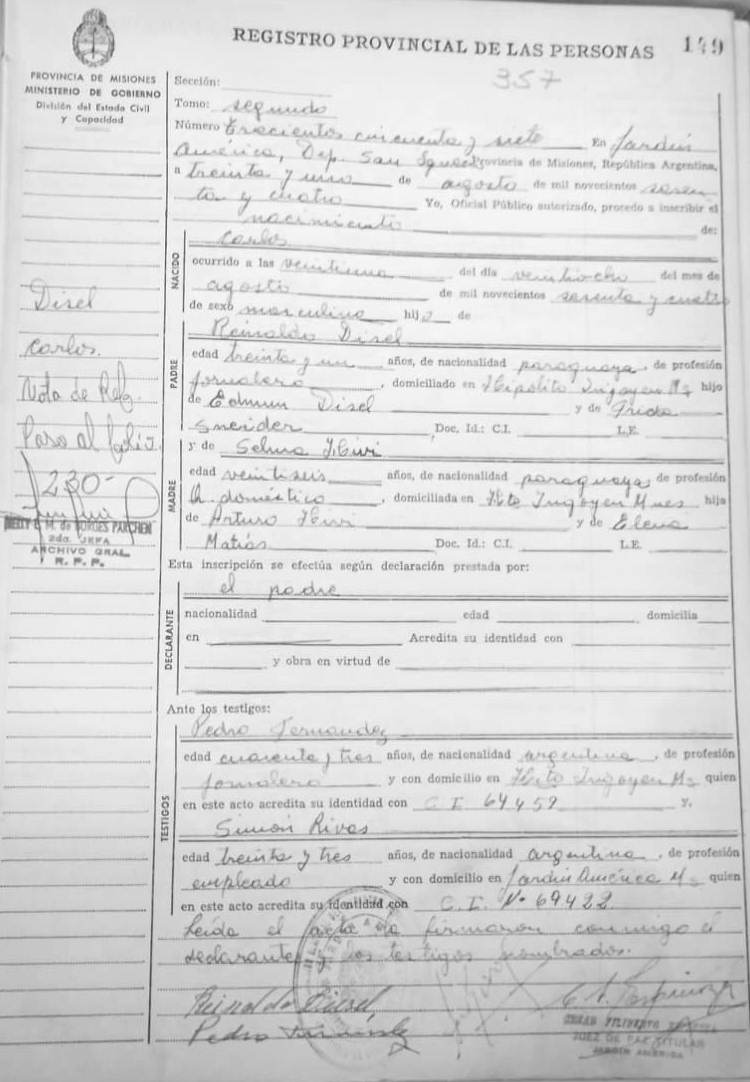 REGISTRO PROVINCIAL DE LAS PERSONAS 149
357
PROVINCIA DE MISIONES
MINISTERIO DE GOBIERNO
División del Estado Civil
y Capacidad
Sección:
Tomo: segundo
Número trecientos cincuenta y siete En Jardin
América, Dep. San Ignacio Provincia de Misiones, República Argentina,
a treinta y uno de agosto de mil novecientos sesen
ta y cuatro Yo, Oficial Público autorizado, procedo a inscribir el
nacimiento de:
Carlos
NACIDO
ocurrido a las veintiuna del día veintiocho del mes de
agosto de mil novecientos sesenta y cuatro
de sexo masculino hijo de
Reinaldo Disel
PADRE
edad treinta y un años, de nacionalidad paraguaya, de profesión
jornalero, domiciliado en Hipolito Irigoyen Ms hijo
de Edmun Disel y de Frida
Sneider Doc. Id.: C.I. L.E.
y de Selma
MADRE
edad veintiseis años, de nacionalidad paraguaya de profesión
Q. doméstico, domiciliada en Hto Irigoyen Mnes hija
de Arturo y de Elena
Matias Doc. Id.: C.I. L.E.
Esta inscripción se efectúa según declaración prestada por:
el padre
DECLARANTE
nacionalidad edad domicilia
en Acredita su identidad con
y obra en virtud de
Ante los testigos:
Pedro Fernandez
TESTIGOS
edad cuarenta y tres años, de nacionalidad argentina, de profesión
jornalero y con domicilio en Hto Irigoyen Ms quien
en este acto acredita su identidad con C I 64459 y,
Simón Rivas
edad treinta y tres años, de nacionalidad argentina, de profesión
empleado y con domicilio en Jardin América Ms quien
en este acto acredita su identidad con C. I. Nº 69422
Leida el acta la firmaron conmigo el
declarante y los testigos nombrados.
Reinaldo Disel
Pedro
JUEZ DE PAZ TITULAR
JARDIN AMERICA
Disel
Carlos.
Nota de Ref.
Paso al folio
230-
M. de BORGES PARCHEN
2da. JEFA
ARCHIVO GRAL.
R. P. P.